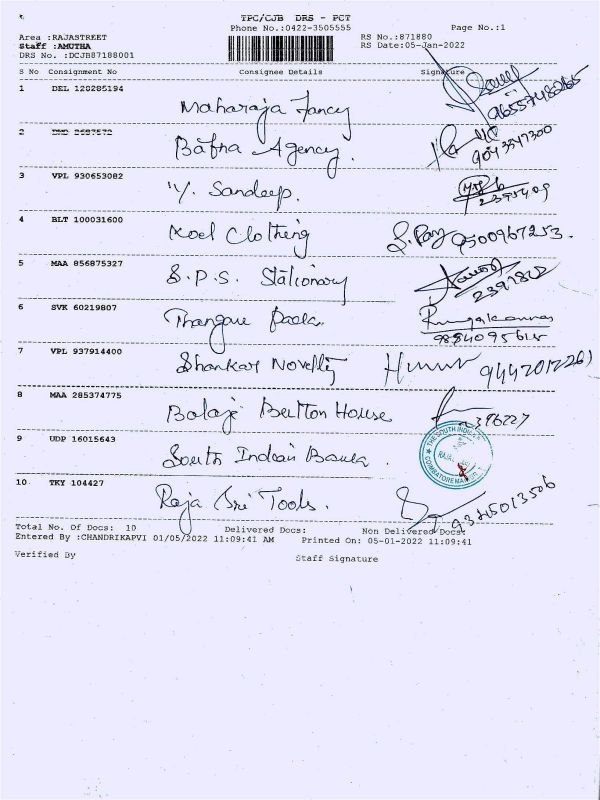 TPC/CJB DRS - PCT
Phone No.:0422-3505555
Page No.:1
Area :RAJASTREET
RS No.:871880
Staff :AMUTHA
RS Date:05-Jan-2022
DRS No. :DCJB87188001
S No Consignment No Consignee Details Signature
1 DEL 120285194 Maharaja Fancy
2 Bafna Agency.
9043547300
3 VPL 930653082 V. Sandeep.
4 BLT 100031600 Koel Clothing
9500967253.
5 MAA 856875327 S.P.S. Stationary
6 SVK 60219807
7 VPL 937914400 Shankar Novelty
8 MAA 285374775 Balaji Button House
9 UDP 16015643 South Indian Bank.
THE SOUTH INDIAN
COIMBATORE MAIN
10 TKY 104427 Raja Sri Tools.
9345013506
Total No. Of Docs: 10 Delivered Docs: Non Delivered Docs:
Entered By :CHANDRIKAPVI 01/05/2022 11:09:41 AM Printed On: 05-01-2022 11:09:41
Verified By Staff Signature